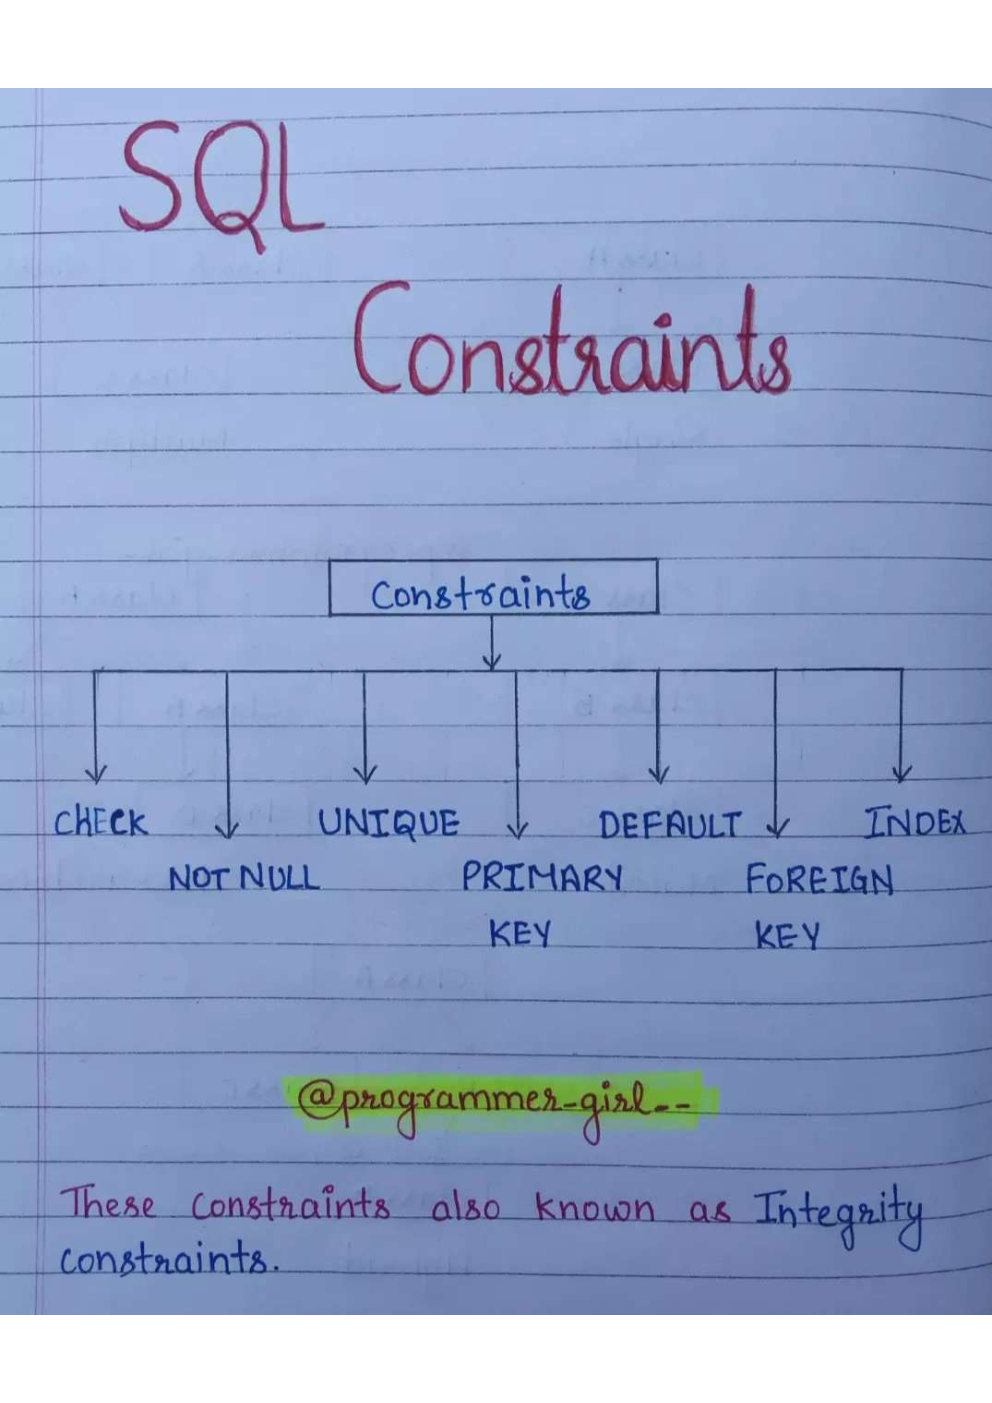 SQL
Constraints
Constraints
CHECK
NOT NULL
UNIQUE
PRIMARY
KEY
DEFAULT
FOREIGN
KEY
INDEX
@programmer-girl--
These constraints also known as Integrity
constraints.